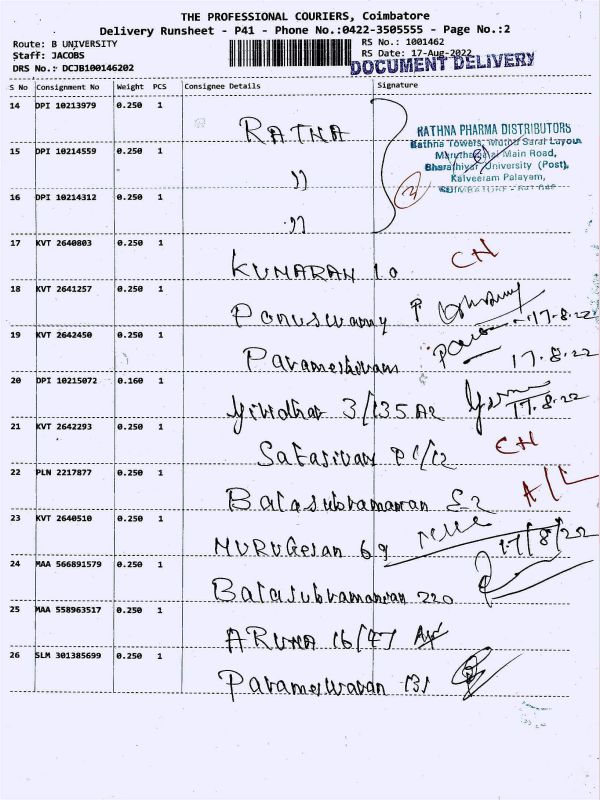 THE PROFESSIONAL COURIERS, Coimbatore
Delivery Runsheet - P41 - Phone No.:0422-3505555 - Page No.:2
Route: B UNIVERSITY
Staff: JACOBS
DRS No.: DCJB100146202
RS No.: 1001462
RS Date: 17-Aug-2022
DOCUMENT DELIVERY
S No Consignment No Weight PCS Consignee Details Signature
14 DPI 10213979 0.250 1 RATNA
RATHNA PHARMA DISTRIBUTORS
Main Road,
Bharathiyar University (Post),
Kalveeram Palayam,
15 DPI 10214559 0.250 1 ,,
16 DPI 10214312 0.250 1 ,,
17 KVT 2640803 0.250 1 KUMARAN 10 CH
18 KVT 2641257 0.250 1 Ponuswamy 17-8-22
19 KVT 2642450 0.250 1 Parameshwaran 17-8-22
20 DPI 10215072 0.160 1 3/135 A2 17.8.22
21 KVT 2642293 0.250 1 Satasivam CH
22 PLN 2217877 0.250 1 Balasubramanian A/L
23 KVT 2640510 0.250 1 MURUGesan 69 17/8/22
24 MAA 566891579 0.250 1 Balasubramanian 220
25 MAA 558963517 0.250 1 ARUNA 16/47
26 SLM 301385699 0.250 1 Parameswaran 131